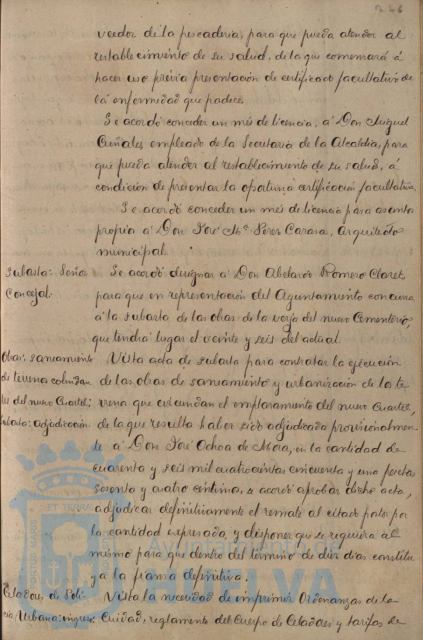 226
veedor de la pescadería, para que pueda atender al
restablecimiento de su salud, de la que comenzará á
hacer uso previa presentación de certificado facultativo de
la enfermedad que padece.
Se acordó conceder un mes de licencia, á Don Miguel
empleado de la Secretaría de la Alcaldía, para
que pueda atender al restablecimiento de su salud, á
condición de presentar la oportuna certificación facultativa.
Se acordó conceder un mes de licencia para asuntos
propios á Don José Mª Pérez Carasa, Arquitecto
municipal.
Subasta: Señor Concejal.
Se acordó designar á Don Abelardo Romero Claret,
para que en representación del Ayuntamiento concurra
á la subasta de las obras de la verja del nuevo Cementerio,
que tendrá lugar el veinte y seis del actual.
Obras: saneamiento
de terreno colindan
tes del nuevo Cuartel;
subasta: adjudicación
Vista acta de subasta para contratar la ejecución
de las obras de saneamiento y urbanización de los te-
rrenos que circundan el emplazamiento del nuevo Cuartel,
de la que resulta haber sido adjudicado provisionalmen-
te á Don José Ochoa de en la cantidad de
cuarenta y seis mil cuatrocientas cincuenta y una pesetas
sesenta y cuatro céntimos, se acordó aprobar dicha acta,
adjudicar definitivamente el remate al citado postor por
la cantidad expresada, y disponer que se requiera al
mismo para que dentro del término de diez días constitu-
ya la fianza definitiva.
Celadores de Poli-
cía Urbana: ingreso
Vista la necesidad de imprimir Ordenanzas de la
Ciudad, reglamento del Cuerpo de Celadores y tarifas de
PORTUS MARIS ET TERRAE CUSTODIA
Ayuntamiento de
HUELVA